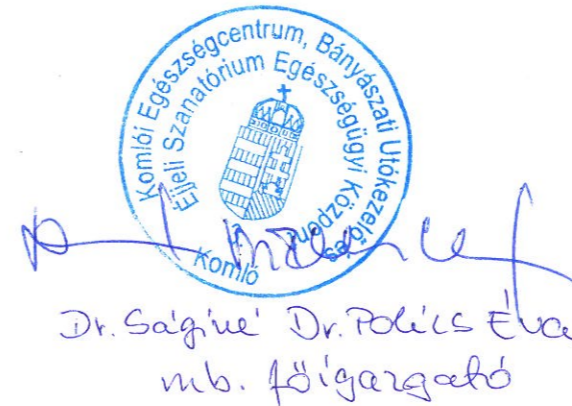 Komlói Egészségcentrum, Bányászati Utókezelő és
Éjjeli Szanatórium Egészségügyi Központ
Komló
Dr. Ságiné Dr. Polics Éva
mb. főigazgató